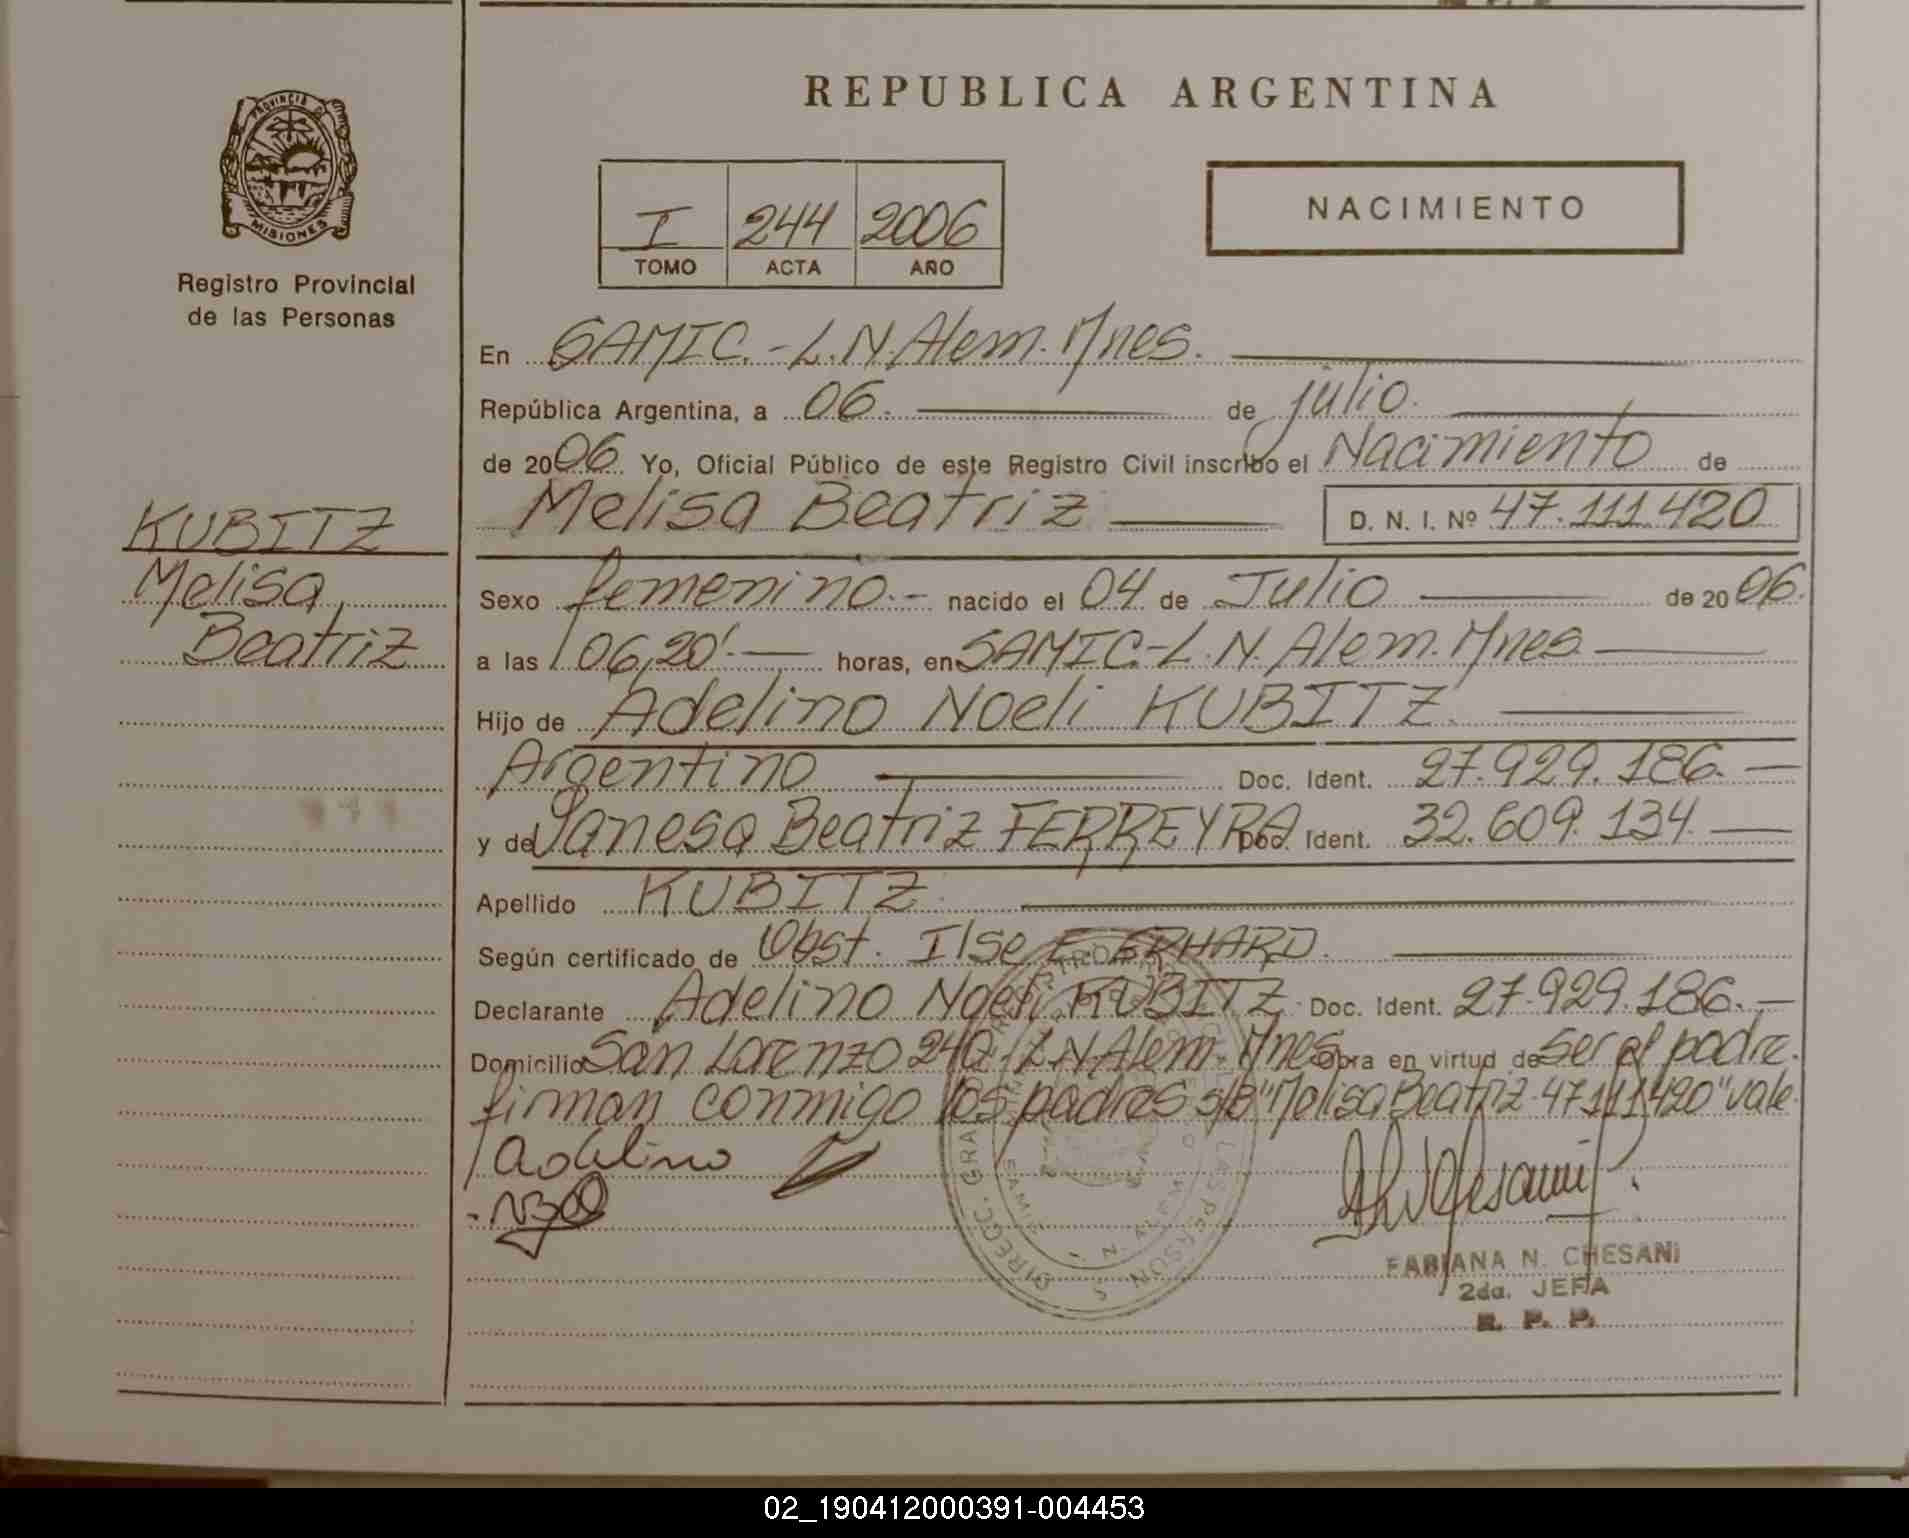 REPUBLICA ARGENTINA
PROVINCIA D
MISIONES
Registro Provincial
de las Personas
I 244 2006
TOMO ACTA AÑO
NACIMIENTO
En SAMIC.-L.N.Alem.Mnes.
República Argentina, a 06. de julio.
de 2006 Yo, Oficial Público de este Registro Civil inscribo el Nacimiento de
Melisa Beatriz D. N. I. Nº 47.111.420
KUBITZ
Melisa
Beatriz
Sexo femenino.- nacido el 04 de Julio de 2006.
a las 06,20'.- horas, en SAMIC.-L.N.Alem.Mnes
Hijo de Adelino Noeli KUBITZ.
Argentino Doc. Ident. 27.929.186.-
y de Vanesa Beatriz FERREYRA Doc. Ident. 32.609.134.-
Apellido KUBITZ.
Según certificado de Obst. Ilse E. ERHARD.
Declarante Adelino Noeli KUBITZ. Doc. Ident. 27.929.186.-
Domicilio San Lorenzo 240, L.N.Alem. Mnes Obra en virtud de ser el padre.
firman conmigo los padres s/b "Melisa Beatriz-47.111.420" vale.
Adelino
FABIANA N. CHESANI
2da. JEFA
R. P. P.
02_190412000391-004453